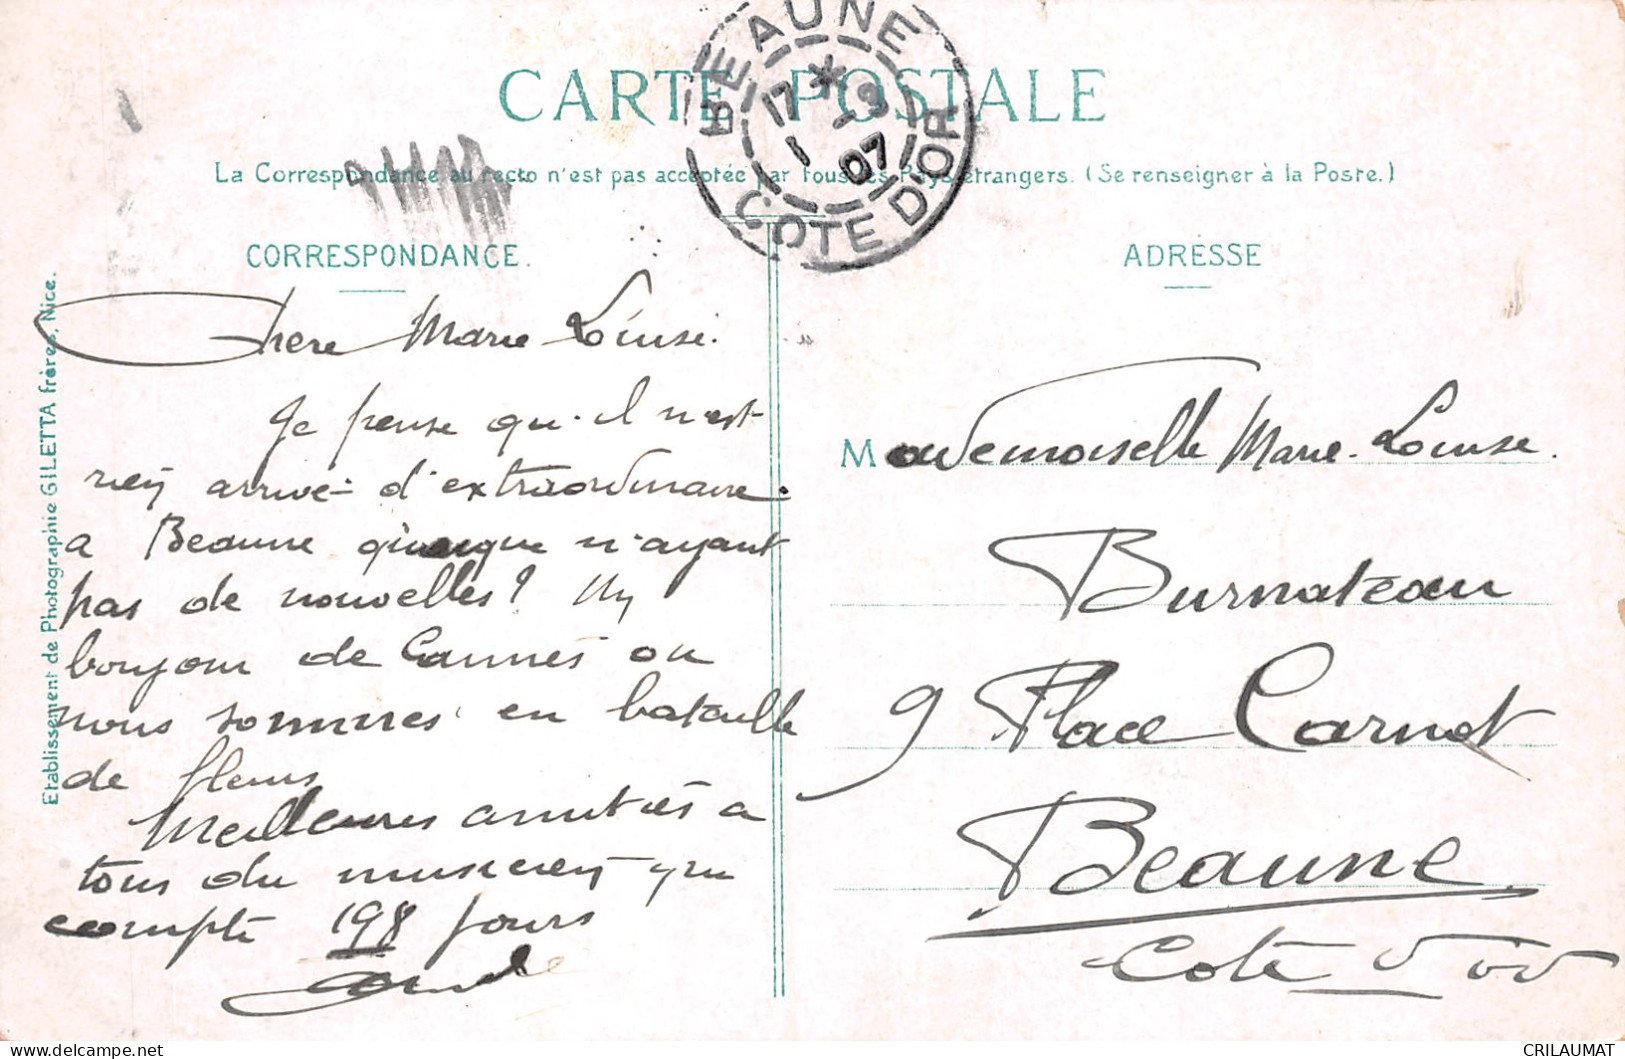 CARTE POSTALE
BEAUNE
17 * 9
07
COTE D'OR
La Correspondance au recto n'est pas acceptée par tous les Pays étrangers. (Se renseigner à la Poste.)
CORRESPONDANCE.
Chere Marie Louise.
Je pense qu'il n'est
rien arrivé d'extraordinaire
a Beaune quoique n'ayant
pas de nouvelles? Un
bonjour de Cannes ou
nous sommes en bataille
de fleurs
Meilleures amitiés a
tous du musicien qui
compte 198 jours
Etablissement de Photographie GILETTA frères, Nice.
ADRESSE
Mademoiselle Marie-Louise.
Burnateau
9 Place Carnot
Beaune
Cote d'or
CRILAUMAT